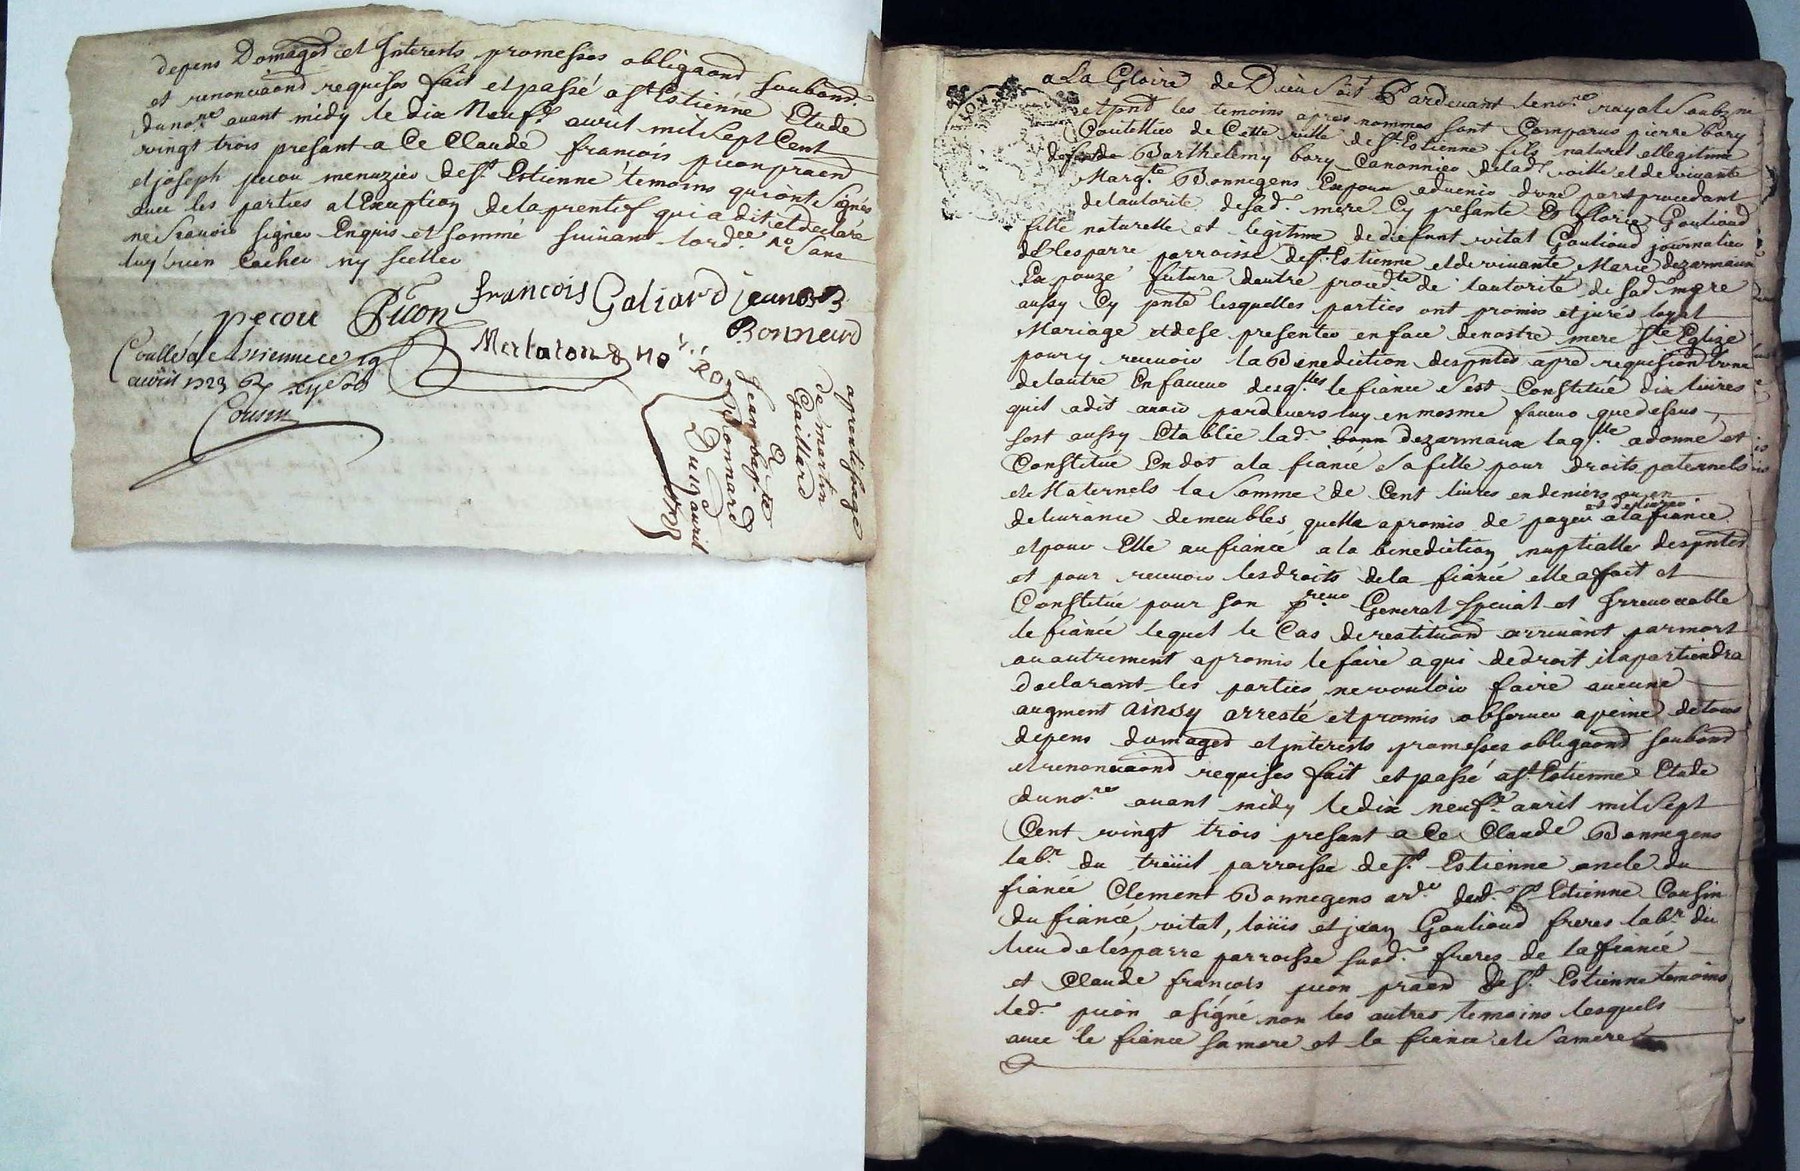 depens Domages et Interests promesses obligaond soubond.
et renonciaond requises fait et passé a St Estienne Etude
du no.re avant midy le dix Neufe avril mil sept Cent
vingt trois presant a Ce Claude françois picon praend
et joseph pecou menuzier de St Estienne temoins qui ont signes
avec les parties a l'Exception de laprentif qui a dit et declare
ne scavoir signer Enquis et somme suivant lord.ce no Sans
luy rien Cacher ny sceller
françois Galiard jeune
pecou Picon
Bonnard
Merlaton no.re Ro
Controllé a St estienne ce 19
avril 1723 Rx xij sols
Cousin
aprentissage
de martin
Gaillard
&
Jean bapt.te
Bonnard
Du 19 avril
1723
a La Gloire de Dieu soit Pardevant le no.re royal soubz.ne
et pnt les temoins apres nommes sont Comparus pierre bory
Coutellier de Cette ville de St Estienne fils naturel et legitime
de feu Barthelemy bory Canonnier de lad. ville et de vivante
Marg.te Bonnegens Expoux advenir dune part procedant
de lautorite de sad. mere Cy presante Et florie Gouliond
fille naturelle et legitime de deffunt vital Gouliond journalier
de lesparre parroisse de St Estienne et de vivante Marie dezarmaux
Expouze future dautre proced.te de lautorité de sad. mere
aussy Cy pnte lesquelles parties ont promis et jures loyal
Mariage et de se presenter en face de nostre mere Ste Eglize
pour y recevoir la Benediction des pntes apre requision lune
de lautre En faveur desq.lles le fiance s'est Constitué dix livres
quil a dit avoir pardevers luy en mesme faveur que dessus
sest aussy Etablie lad. dezarmaux laq.lle a donné et
Constitué En dot a la fiancé sa fille pour droits paternels
et Maternels la somme de Cent livres en deniers ou en
delivrance de meubles quelle a promis de payer et delivrer a la fiance
et pour Elle au fiance a la benediction nuptialle des pntes
et pour recevoir les droits de la fiancé elle a fait et
Constitué pour son p.reur General special et Irrevocable
le fiancé lequel le Cas de restituaond arrivant par mort
ou autrement a promis le faire a qui de droit il apartiendra
declarant les parties ne vouloir faire aucune
augment ainsy arresté et promis observer a peine de tous
depens domages et interests promesses obligaond soubond
et renonciaond requises fait et passé a St Estienne Etude
du no.re avant midy le dix neufe avril mil sept
Cent vingt trois presant a Ce Claude Bonnegens
lab.r du treüil parroisse de St Estienne oncle du
fiancé Clement Bonnegens ar.er dud. St Estienne Cousin
du fiancé, vital, loüis et jean Gouliond freres lab.r du
lieu de lesparre parroisse susd. freres de la fiancé
et Claude françois picon praend de St Estienne temoins
led. picon a signé non les autres temoins lesquels
avec le fiance sa mere et la fiance et sa mere